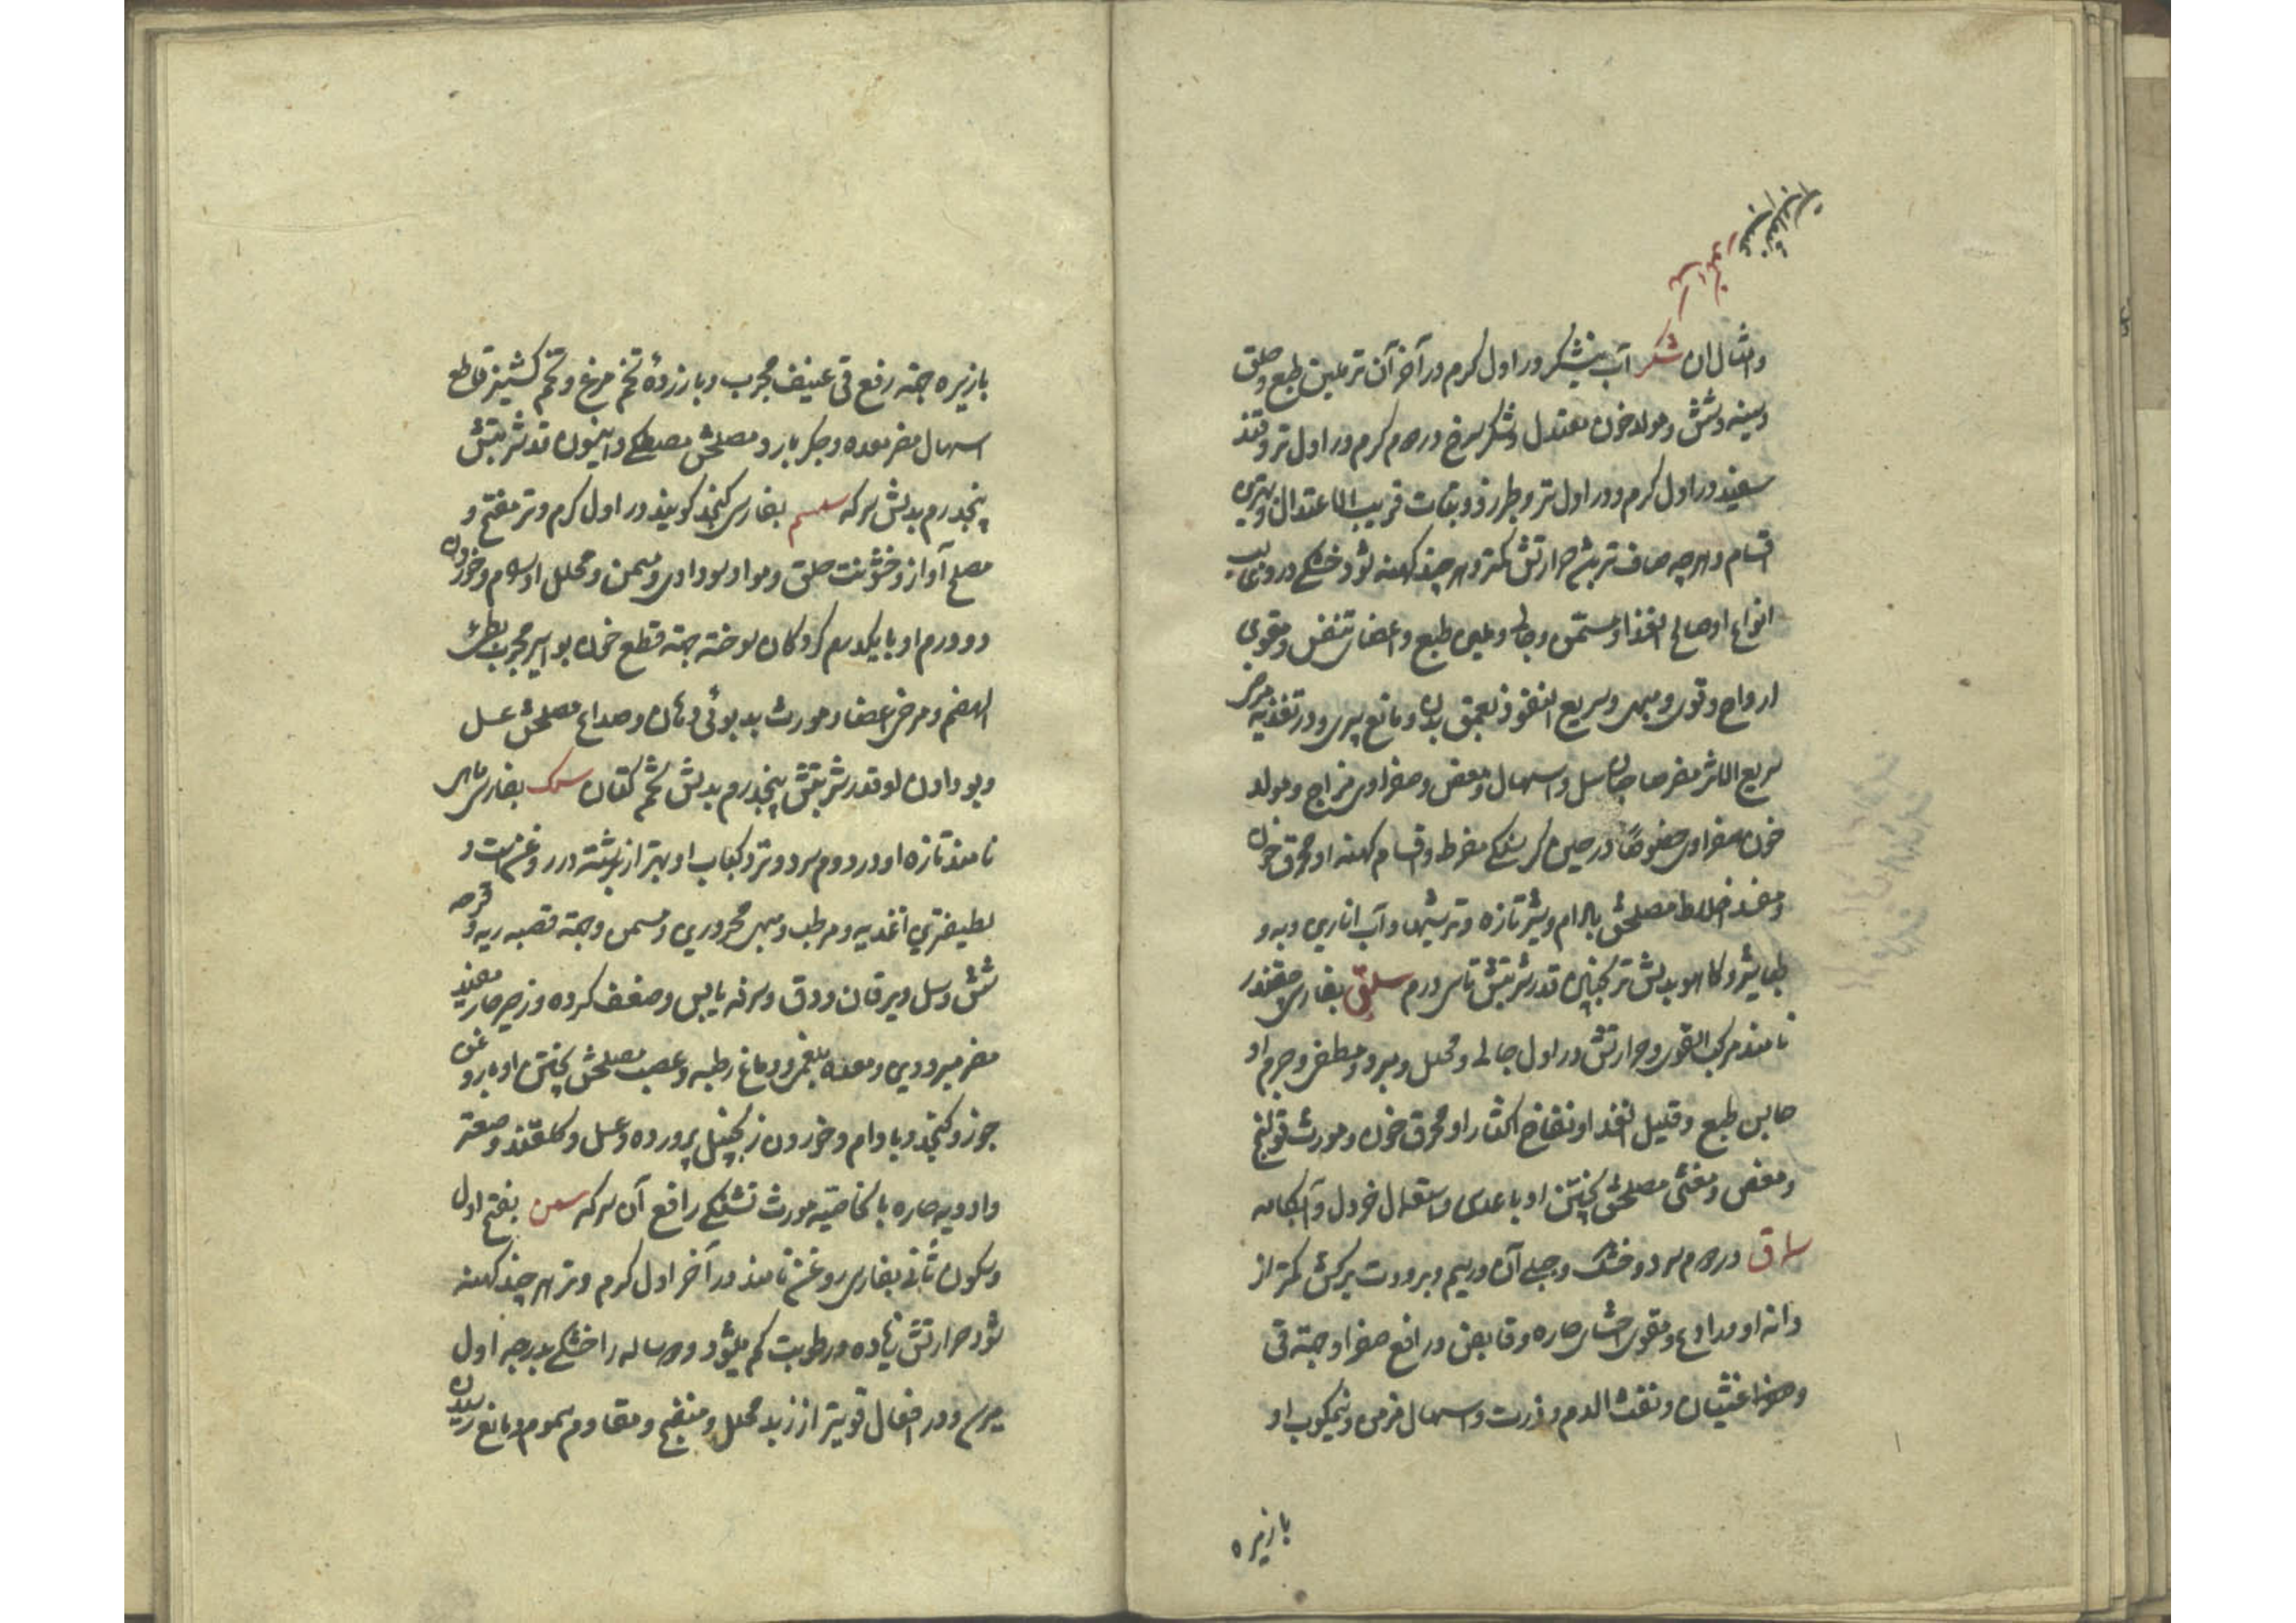 وامثال ان شکر آب نیشکر در اول کرم و در آخر آن تر ملین طبع و حلق
و سینه و شش و مولد خون معتدل و شکر سرخ در دوم کرم در اول تر و قند
سفید در اول کرم و در اول تر و طبرزد و نبات قریب الاعتدال و بهترین
اقسام و هرچه صاف تر باشد حرارتش کمتر و هرچند کهنه شود خشکی در وی
انواع او صالح الغذا و مسمن و جالی و ملین طبع و اعضای تنفس و مقوی
ارواح و قوی و مبهی و سریع النفوذ بعمق بدن و مانع پیری و در تغذیه
سریع الاثر مضر صاحبان سل و اسهال و مغص و صفراوی مزاج و مولد
خون صفراوی خصوصا در حین کرسنکی مفرط و اقسام کهنه او محرق خون
و مفسد اخلاط مصلحش بادام و شیر تازه و ترشیها و آب انارین و به و
طباشیر و کاهو بدلش ترنجبین قدر شربتش تا سی درم سلق بفارسی چقندر
نامند مرکب القوی و حرارتش در اول جالی و محلل و مبرد و مطفی و جرم او
حابس طبع و قلیل الغذا و نفاخ اکثار او محرق خون و مورث قولنج
و مغص و مغثی مصلحش پختن او با عدس و استعمال خردل و آبکامه
سماق در دوم سرد و خشک و جبلی آن در سیم و برودت برکش کمتر از
دانه او و رادع و مقوی احشای حاره و قابض و رافع صفرا و جهته قی
و غثیان و نفث الدم و ذرب و اسهال مزمن و نیمکوب او
بازیره
بازیره جهته رفع قی عنیف مجرب و با زرده تخم مرغ و تخم کشنیز قاطع
اسهال مضر معده و جکر بارد مصلحش مصطکی و انیسون قدر شربتش
پنجدرم بدلش سرکه سمسم بفارسی کنجد کویند در اول کرم و تر مفتح و
مصلح آواز و خشونت حلق و مواد سوداوی و مسمن و محلل اورام و خوردن
دو درم او با یکدرم کردکان سوخته جهته قطع خون بواسیر مجرب بطی
الهضم و مرخی اعضا و مورث بدبوئی دهان و صداع مصلحش عسل
و بو دادن او قدر شربتش پنجدرم بدلش تخم کتان سمک بفارسی ماهی
نامند تازه او در دوم سرد و تر و کباب او بهتر از برشته در روغنست و
لطیفترین اغذیه و مرطب و مبهی محرورین و مسمن و جهته قصبه ریه و قرحه
شش و سل و یرقان و دق و سرفه یابس و ضعف کرده و زحیر حار مفید
مضر مبرودین و معده بلغمی و دماغ رطبه و عصب مصلحش پختن او به روغن
جوز و کنجد و بادام و خوردن زنجبیل پرورده و عسل و کلقند و صعتر
و ادویه حاره بالخاصیه مورث تشنکی رافع آن سرکه سمن بفتح اول
و سکون ثانی بفارسی روغن نامند در آخر اول کرم و تر هرچند کهنه
شود حرارتش زیاده و رطوبت کم میشود و دو ساله را خشکی بدرجه اول
میرسد و در افعال قویتر از زبد محلل و منضج و مقاوم سموم و مانع رسیدن